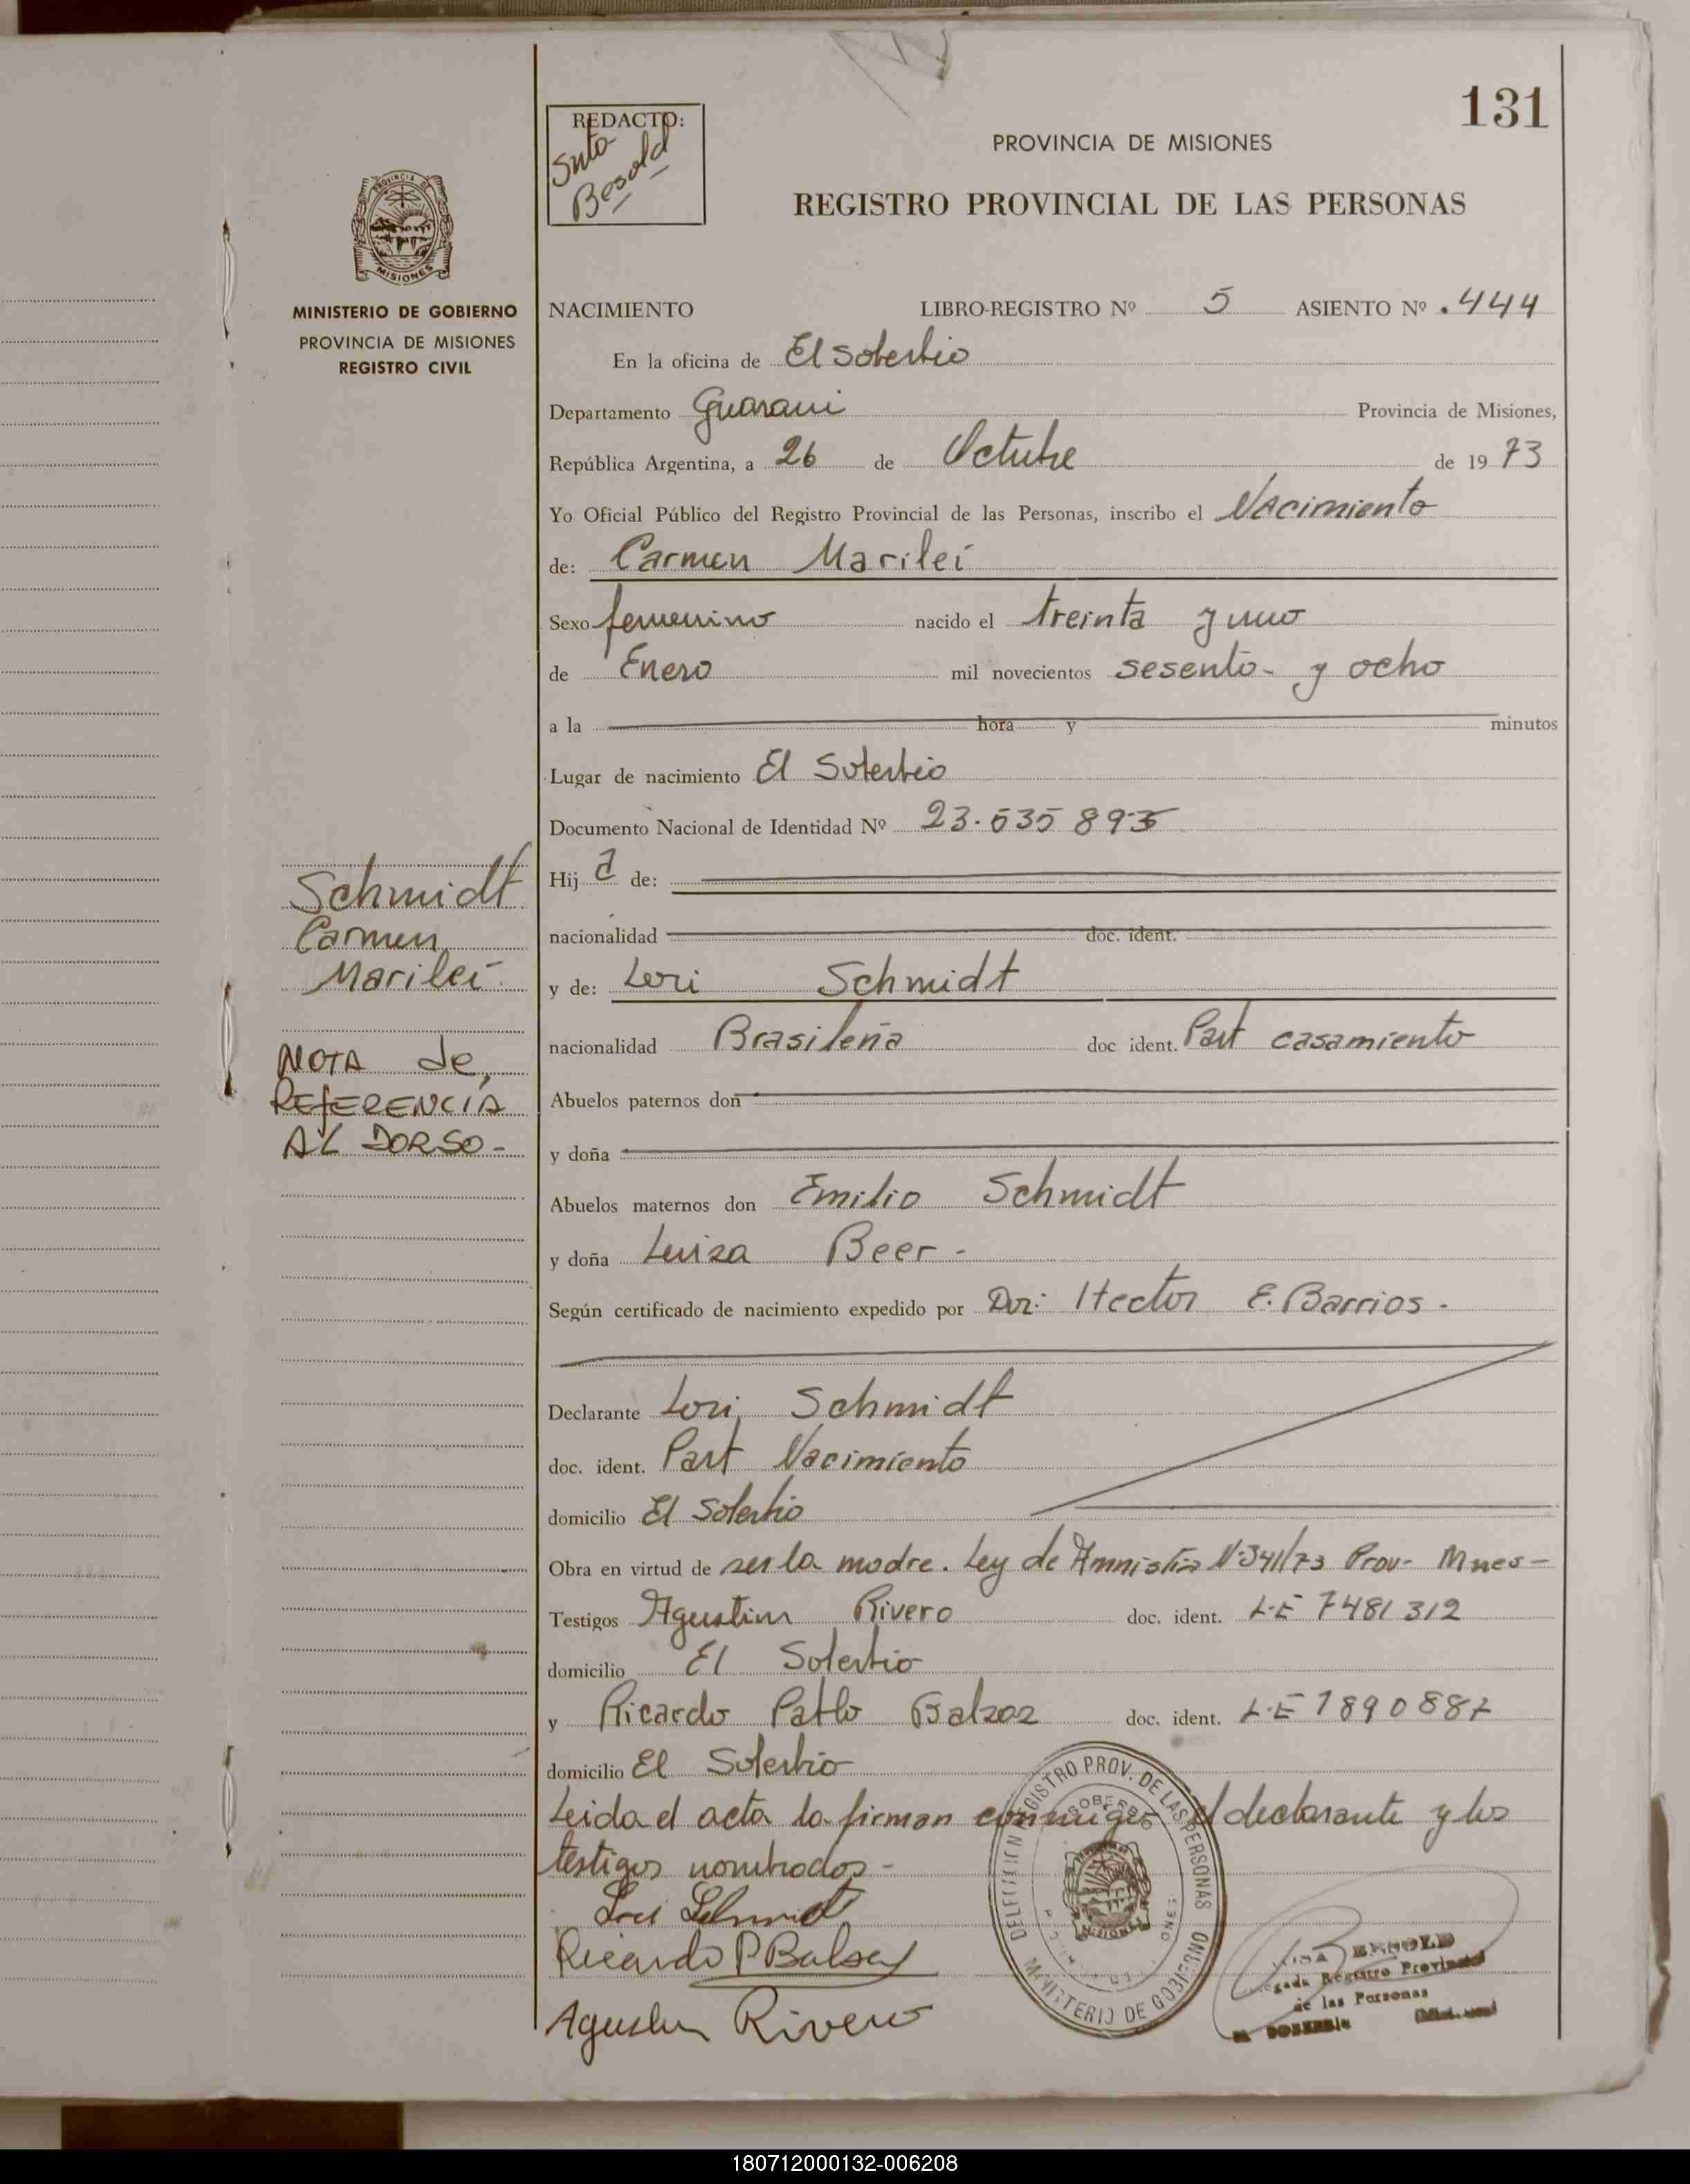 131
REDACTO:
Snta
Besold
PROVINCIA DE MISIONES
REGISTRO PROVINCIAL DE LAS PERSONAS
PROVINCIA DE
MISIONES
MINISTERIO DE GOBIERNO
PROVINCIA DE MISIONES
REGISTRO CIVIL
NACIMIENTO LIBRO-REGISTRO Nº 5 ASIENTO Nº .444
En la oficina de El Soberbio
Departamento Guarani Provincia de Misiones,
República Argentina, a 26 de Octubre de 19 73
Yo Oficial Público del Registro Provincial de las Personas, inscribo el Nacimiento
de: Carmen Marilei
Sexo femenino nacido el treinta y uno
de Enero mil novecientos sesenta y ocho
a la hora y minutos
Lugar de nacimiento El Soberbio
Documento Nacional de Identidad Nº 23.535 893
Hij a de:
nacionalidad doc. ident.
y de: Lori Schmidt
nacionalidad Brasileña doc ident. Part casamiento
Abuelos paternos don
y doña
Abuelos maternos don Emilio Schmidt
y doña Luiza Beer -
Según certificado de nacimiento expedido por Dr: Hector E. Barrios -
Declarante Lori Schmidt
doc. ident. Part Nacimiento
domicilio El Soberbio
Obra en virtud de ser la madre. Ley de Amnistia Nº 341/73 Prov- Mnes -
Testigos Agustin Rivero doc. ident. L.E 7481312
domicilio El Soberbio
y Ricardo Pablo Balzaz doc. ident. L.E 1890887
domicilio El Soberbio
Leida el acta la firman conmigo el declarante y los
testigos nombrados -
Lori Schmidt
Ricardo P Balsaz
Agustin Rivero
Schmidt
Carmen
Marilei
NOTA de
REFERENCIA
AL DORSO -
DELEGACION REGISTRO PROV. DE LAS PERSONAS
MINISTERIO DE GOBIERNO
SOBERBIO
MISIONES
BESOLD
Registro Provincial
de las Personas
SOBERBIO
180712000132-006208